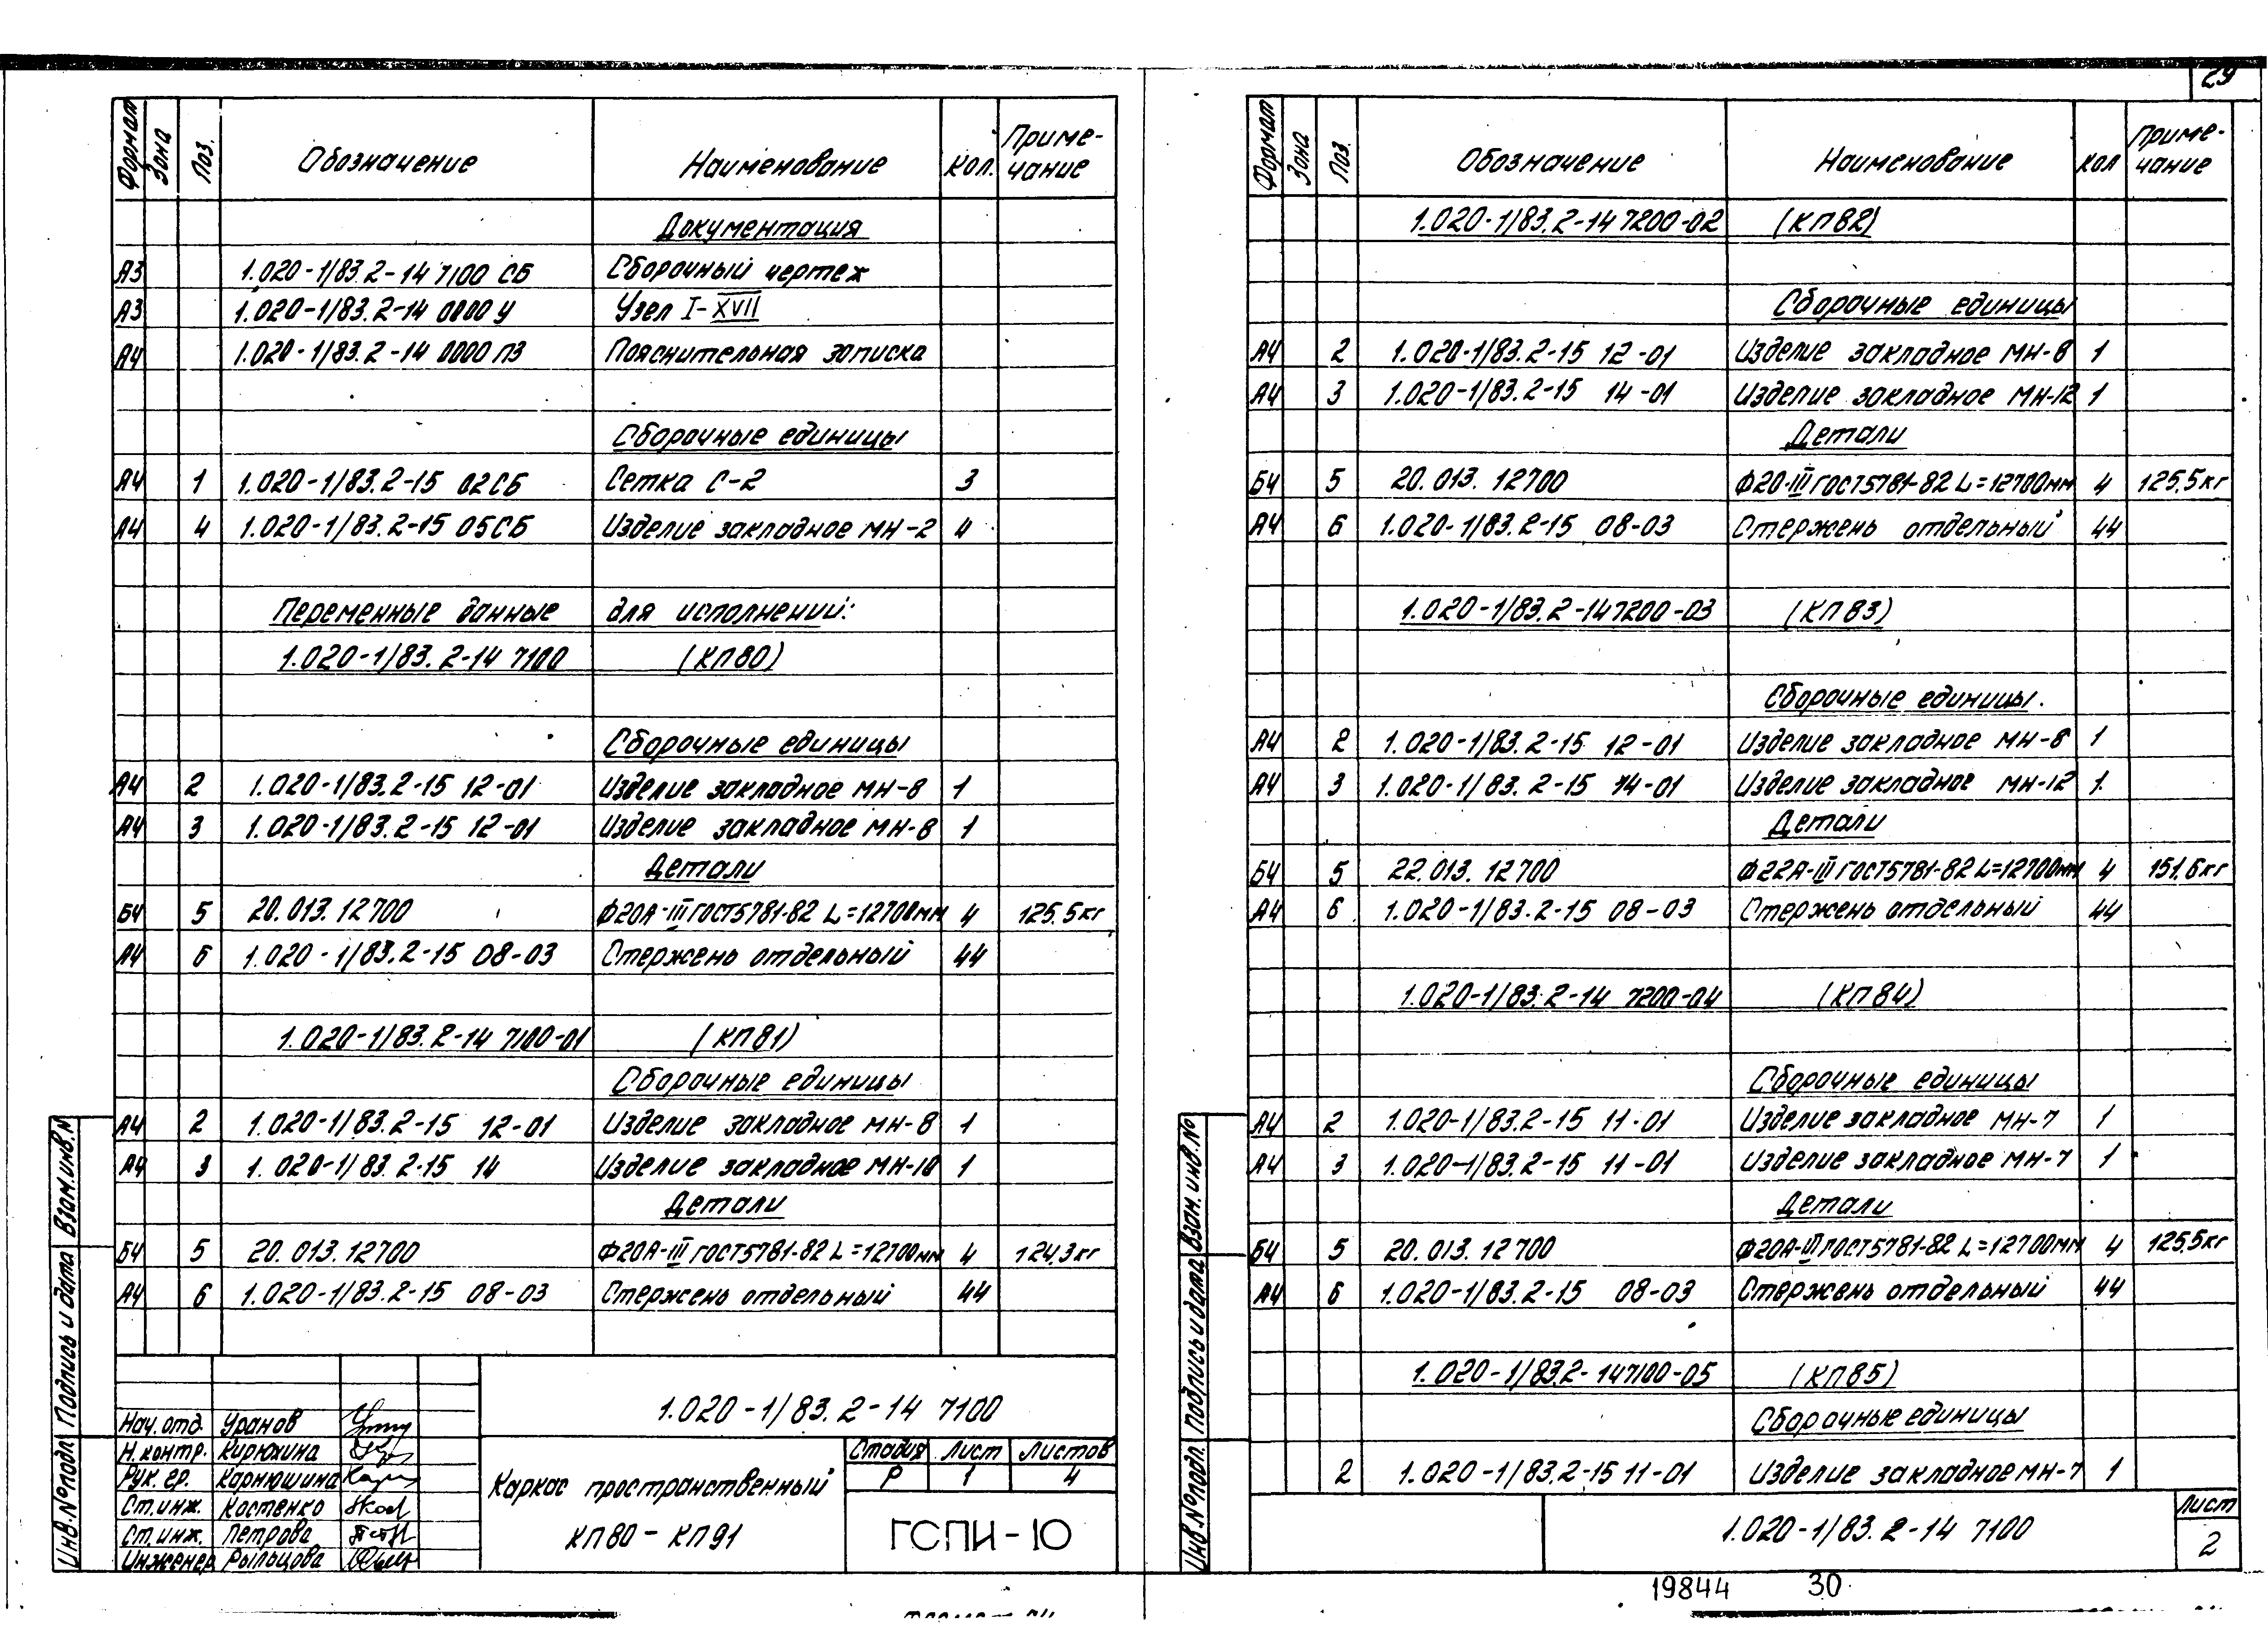 29
Формат Зона Поз. Обозначение Наименование Кол. Приме-
чание
Документация
А3 1.020-1/83.2-14 7100 СБ Сборочный чертеж
А3 1.020-1/83.2-14 0000 У Узел I-XVII
А4 1.020-1/83.2-14 0000 ПЗ Пояснительная записка
Сборочные единицы
А4 1 1.020-1/83.2-15 02СБ Сетка С-2 3
А4 4 1.020-1/83.2-15 05СБ Изделие закладное МН-2 4
Переменные данные для исполнений:
1.020-1/83.2-14 7100 (КП80)
Сборочные единицы
А4 2 1.020-1/83.2-15 12-01 Изделие закладное МН-8 1
А4 3 1.020-1/83.2-15 12-01 Изделие закладное МН-8 1
Детали
Б4 5 20.013.12700 Ф20А-III ГОСТ5781-82 L=12700мм 4 125.5кг
А4 6 1.020-1/83.2-15 08-03 Стержень отдельный 44
1.020-1/83.2-14 7100-01 (КП81)
Сборочные единицы
А4 2 1.020-1/83.2-15 12-01 Изделие закладное МН-8 1
А4 3 1.020-1/83.2-15 14 Изделие закладное МН-10 1
Детали
Б4 5 20.013.12700 Ф20А-III ГОСТ5781-82 L=12700мм 4 124,3кг
А4 6 1.020-1/83.2-15 08-03 Стержень отдельный 44
Инв.№подл. Подпись и дата Взам.инв.№
1.020-1/83.2-14 7100
Нач.отд. Уранов
Н.контр. Кирюхина
Рук.гр. Карнюшина
Ст.инж. Костенко
Ст.инж. Петрова
Инженер Рыльцова
Каркас пространственный
КП80-КП91
Стадия Лист Листов
Р 1 4
ГСПИ-10
Формат Зона Поз. Обозначение Наименование Кол Приме-
чание
1.020-1/83.2-14 7200-02 (КП82)
Сборочные единицы
А4 2 1.020-1/83.2-15 12-01 Изделие закладное МН-8 1
А4 3 1.020-1/83.2-15 14-01 Изделие закладное МН-12 1
Детали
Б4 5 20.013.12700 Ф20-III ГОСТ5781-82 L=12700мм 4 125,5кг
А4 6 1.020-1/83.2-15 08-03 Стержень отдельный 44
1.020-1/83.2-14 7200-03 (КП83)
Сборочные единицы.
А4 2 1.020-1/83.2-15 12-01 Изделие закладное МН-8 1
А4 3 1.020-1/83.2-15 14-01 Изделие закладное МН-12 1
Детали
Б4 5 22.013.12700 Ф22А-III ГОСТ5781-82 L=12700мм 4 151.6кг
А4 6 1.020-1/83.2-15 08-03 Стержень отдельный 44
1.020-1/83.2-14 7200-04 (КП84)
Сборочные единицы
А4 2 1.020-1/83.2-15 11-01 Изделие закладное МН-7 1
А4 3 1.020-1/83.2-15 11-01 Изделие закладное МН-7 1
Детали
Б4 5 20.013.12700 Ф20А-III ГОСТ5781-82 L=12700мм 4 125,5кг
А4 6 1.020-1/83.2-15 08-03 Стержень отдельный 44
1.020-1/83.2-14 7100-05 (КП85)
Сборочные единицы
2 1.020-1/83.2-15 11-01 Изделие закладное МН-7 1
Инв.№подл. Подпись и дата Взам.инв.№
1.020-1/83.2-14 7100
Лист
2
19844 30